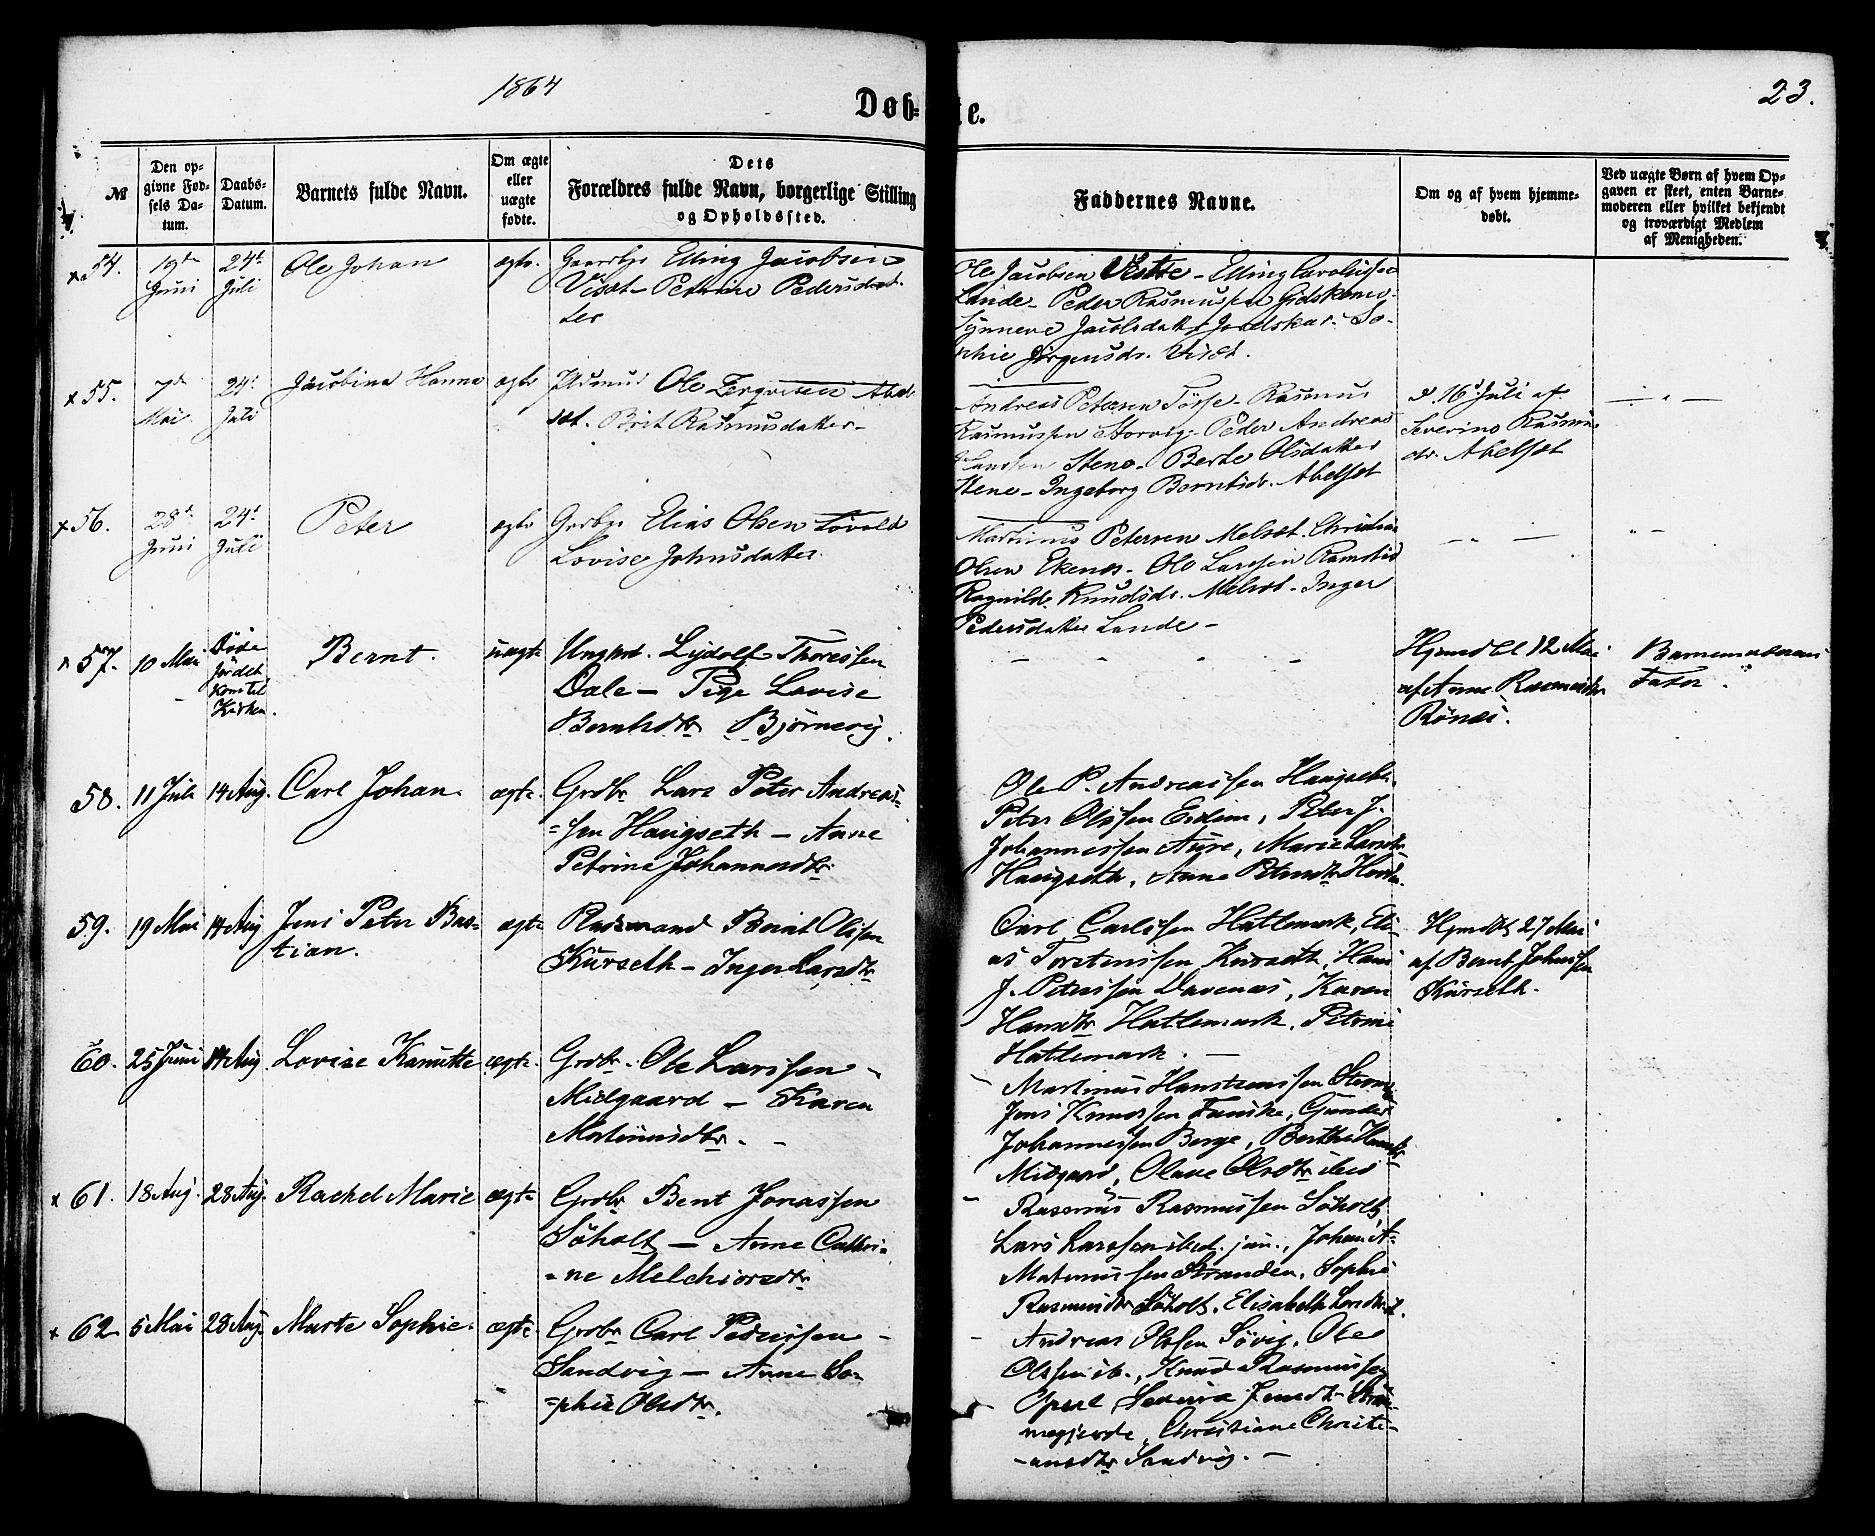 1864
Døb-
te.
23.
№
Den opgivne Fødsels Datum.
Daabs-Datum.
Barnets fulde Navn.
Om ægte eller uægte fødte.
Dets Forældres fulde Navn, borgerlige Stilling og Opholdssted.
Faddernes Navne.
Om og af hvem hjemmedøbt.
Ved uægte Børn af hvem Opgaven er skeet, enten Barnemoderen eller hvilket bekjendt og troværdigt Medlem af Menigheden.
x 54. 19de Juni 24de Juli Ole Johan ægte.
Elling Jacobsen
Viset - Petrine Pedersdat-
ter
Ole Jacobsen Vestre - Elling
Lande - Peder Rasmussen
Synneve Jacobsdatter So-
phie Jørgensdr. Viset.
x 55. 7de Mai 24de Juli Jacobine Hanna ægte
Ole
sæt. Brit Rasmusdatter -
Andreas Petersen Rasmus
Rasmussen Storvig - Peder Andreas
Stene - Berte Olsdatter
Stene - Ingeborg Berntsdr. Abelset
d. 16de Juli af
Severine Rasmus
dr. Abelset
x 56. 28de Juni 24de Juli Peter ægte
Elias Olsen
Lovise Johnsdatter.
Martinus Petersen Melset - Christian
Olsen Ekenæs - Ole Larssen Ramstad
Ragnilde Knudsdr. Melset - Inger
Pedersdatter Lande -
x 57. 10 Mai
Døde
før det
kom til
Kirken.
Bernt. uægte
Ungkrl. Lydolf Thoressen
Dale - Pige Lovise
Berntsdtr Bjørnevig.
Hjmdbt 12 Mai
af Anne Rasmusdtr
Rönæs.
Barnemoderens
Fader.
58. 11 Juli 14 Aug. Carl Johan. ægte.
Grdbr Lars Peter Andreas-
=sen Haugseth - Anne
Petrine Johannesdtr.
Ole P. Andreassen Haugseth.
Peter Olssen Eidem, Peter J.
Johannessen Aure, Marie Larsdtr
Haugseth, Anne Petersdtr
59. 19 Mai 14 Aug Jens Peter Bas-
tian. ægte
Pladsmand Bernt Olssen
Kurseth - Inger Larsdtr
Carl Carlssen Hatlemark, Eli-
as Torstenssen Kurseth, Hans
J. Peterssen Davenæs, Karen
Hansdtr Hatlemark, Petrine
Hatlemark. -
Hjmdbt 27 Mai
af Bernt Johnssen
Kurseth.
60. 25 Juni 14 Aug Lovise Kanutte ægte.
Grdbr. Ole Larssen -
Midgaard - Karen
Martinusdtr. -
Jens Knudssen Gunder
Johannessen Berge, Berthe
Midgard, Olave Olsdtr ibid
x 61. 18 Aug. 28 Aug. Rachel Marie ægte
Grdbr Bent Jonassen
Søholt - Anne Cathri-
=ne Melchiorsdtr
Rasmus Rasmussen Søholt
Lars Larssen ibid. jun., Johan A-
Stranden, Sophie
Rasmusdtr Søholt. Elisabeth Larsdtr
x 62 5 Mai 28 Aug. Marte Sophie. ægte
Grdbr Carl Pederssen -
Sandvig - Anne So-
=phie Olsdtr.
Andreas Olssen Søvig, Ole
Olssen ib., Knud Rasmussen
megjerde, Christiane Christi-
-ansdtr Sandvig. -